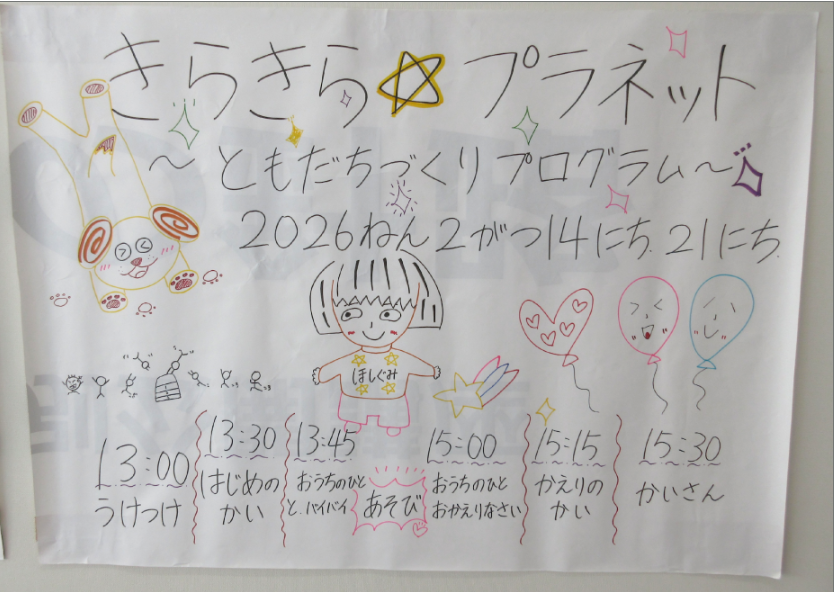 きらきら☆プラネット
～ともだちづくりプログラム～
2026ねん2がつ14にち.21にち.
ほしぐみ
13:00
うけつけ
13:30
はじめの
かい
13:45
おうちのひと
と、バイバイ
あそび
15:00
おうちのひと
おかえりなさい
15:15
かえりの
かい
15:30
かいさん